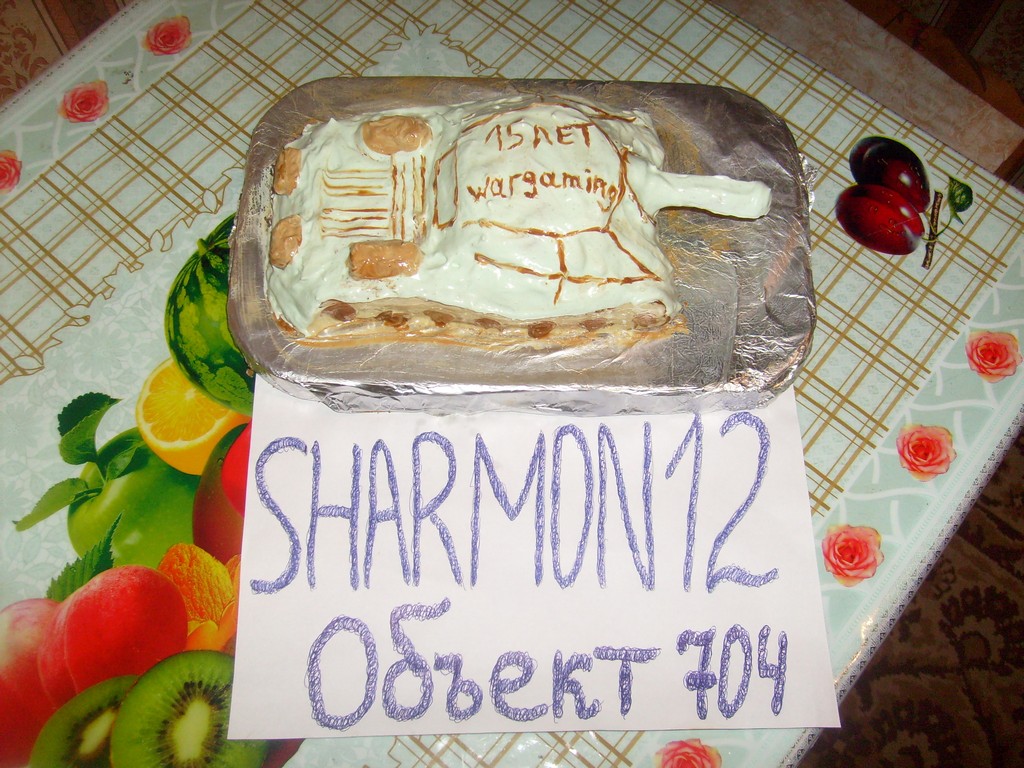 15 ЛЕТ
wargaming
SHARMON12
Объект 704